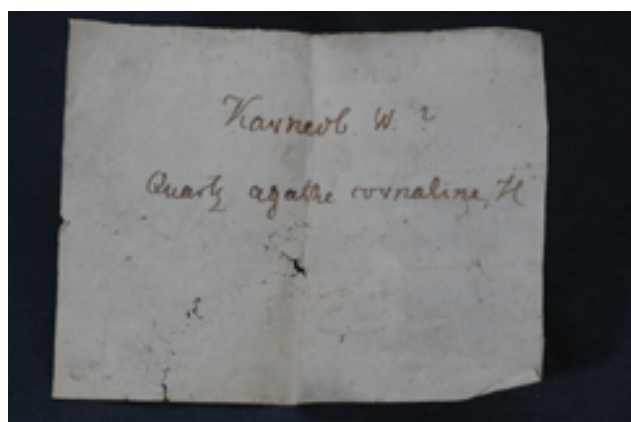 Karneol. W. ?
Quartz agathe cornaline, H